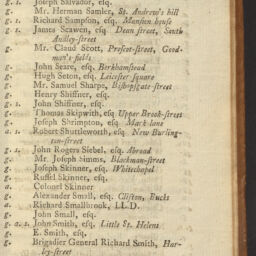 g. s. Joseph Salvador, esq.
g. Mr. Herman Samler, St. Andrew's hill
g. s. Richard Sampson, esq. Mansion house
g. s. James Seawen, esq. Dean street, South
Audley-street
g. Mr. Claud Scott, Prescot-street, Good-
man's fields
g. John Seare, esq. Berkhamstead
g. Hugh Seton, esq. Leicester square
g. Mr. Samuel Sharpe, Bishopsgate-street
g. Henry Shiffner, esq.
g. s. John Shiffner, esq.
g. Thomas Skipwith, esq Upper Brook-street
g. Joseph Shrimpton, esq Mark-lane
a. s. Robert Shuttleworth, esq. New Burling-
ton-street
g. s. John Rogers Siebel, esq. Abroad
g. Mr. Joseph Simms, Blackman-street
g. Joseph Skinner, esq. Whitechapel
g. Russel Skinner, esq.
a. Colonel Skinner
g. Alexander Small, esq. Clifton, Bucks
a. Richard Smallbrook, LL.D.
John Small, esq.
g. a. s. John Smith, esq. Little St. Helens
g. E. Smith, esq.
g. Brigadier General Richard Smith, Har-
ley-street